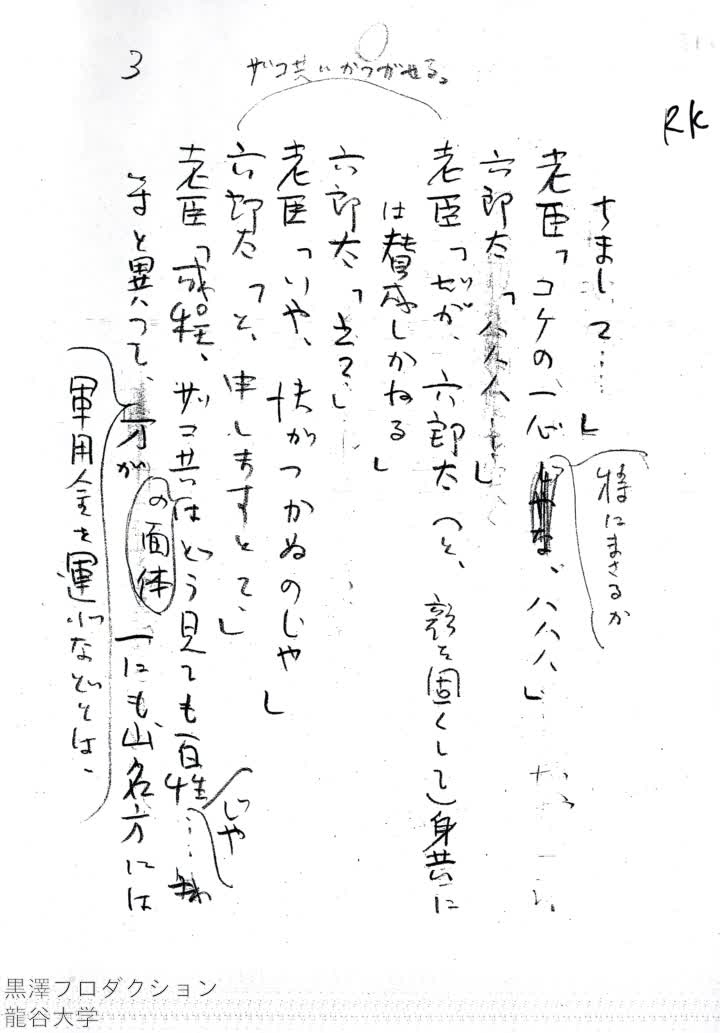 3
ザコ共にかつがせる。
RK
ちまして…」
老臣「コケの一心じゃな、ハハハ」
特にまさるか
六郎太「ハハハ」
老臣「ぜが、六郎太(と、顔を固くして)身共に
は賛成しかねる」
六郎太「さて」
老臣「いや、快がつかぬのじや」
六郎太「と、申しますとて、」
老臣「成程、ザコ共はどう見ても百性…
じや
等と異つて、
の面体
一にも山名方には
軍用金を運ぶなどとは、
黒澤プロダクション
龍谷大学